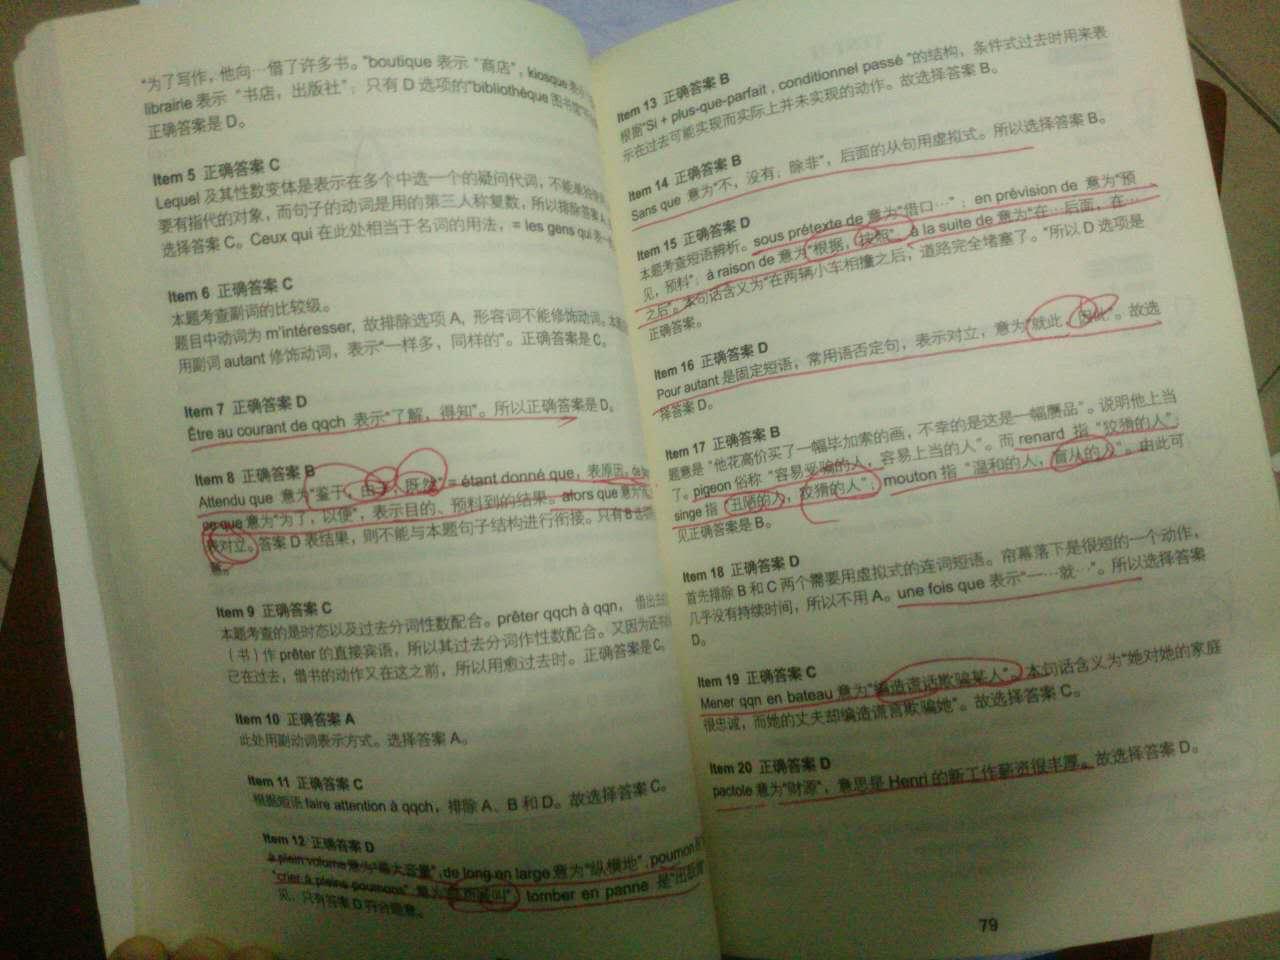 “为了写作，他向…借了许多书。”boutique 表示 “商店”, kiosque 表示
librairie 表示 “书店，出版社”；只有 D 选项的“bibliothèque 图书馆”
正确答案是 D。
Item 5 正确答案 C
Lequel 及其性数变体是表示在多个中选一个的疑问代词，不能单独
要有指代的对象，而句子的动词是用的第三人称复数，所以排除答案 A
选择答案 C。Ceux qui 在此处相当于名词的用法，= les gens qui 表
Item 6 正确答案 C
本题考查副词的比较级。
题目中动词为 m'intéresser, 故排除选项 A, 形容词不能修饰动词。本
用副词 autant 修饰动词，表示“一样多，同样的”。正确答案是 C。
Item 7 正确答案 D
Être au courant de qqch 表示“了解，得知”。所以正确答案是 D。
Item 8 正确答案 B
Attendu que 意为“鉴于，由于，既然” = étant donné que, 表原因, de
ce que 意为“为了，以便”，表示目的、预料到的结果。alors que 意为
表对立。答案 D 表结果，则不能与本题句子结构进行衔接。只有 B 选
Item 9 正确答案 C
本题考查的是时态以及过去分词性数配合。prêter qqch à qqn， 借出
（书）作 prêter 的直接宾语，所以其过去分词作性数配合。又因为还书
已在过去，借书的动作又在这之前，所以用愈过去时。正确答案是 C。
Item 10 正确答案 A
此处用副动词表示方式。选择答案 A。
Item 11 正确答案 C
根据短语 faire attention à qqch，排除 A、B 和 D。故选择答案 C。
Item 12 正确答案 D
à plein volume 意为“最大音量”, de long en large 意为“纵横地”, poumon
“crier à pleins poumons” 意为 tomber en panne 是“出故障
见，只有答案 D 符合题意。
Item 13 正确答案 B
根据“Si + plus-que-parfait , conditionnel passé ”的结构，条件式过去时用来表
示在过去可能实现而实际上并未实现的动作。故选择答案 B。
Item 14 正确答案 B
Sans que 意为“不，没有；除非”，后面的从句用虚拟式。所以选择答案 B。
Item 15 正确答案 D
本题考查短语辨析。sous prétexte de 意为“借口…”；en prévision de 意为“预
见，预料”；à raison de 意为“根据，按照”。à la suite de 意为“在…后面，在…
之后”。本句话含义为“在两辆小车相撞之后，道路完全堵塞了。”所以 D 选项是
正确答案。
Item 16 正确答案 D
Pour autant 是固定短语，常用语否定句，表示对立，意为“就此，因此”。故选
择答案 D。
Item 17 正确答案 B
题意是 “他花高价买了一幅毕加索的画，不幸的是这是一幅赝品”。说明他上当
了。pigeon 俗称 “容易受骗的人，容易上当的人”。而 renard 指 “狡猾的人”；
singe 指 “丑陋的人，狡猾的人”；mouton 指 “温和的人，盲从的人”。由此可
见正确答案是 B。
Item 18 正确答案 D
首先排除 B 和 C 两个需要用虚拟式的连词短语。帘幕落下是很短的一个动作，
几乎没有持续时间，所以不用 A。une fois que 表示“一…就…”。所以选择答案
D。
Item 19 正确答案 C
Mener qqn en bateau 意为“编造谎话欺骗某人”。本句话含义为“她对她的家庭
很忠诚，而她的丈夫却编造谎言欺骗她”。故选择答案 C。
Item 20 正确答案 D
pactole 意为“财源”，意思是 Henri 的新工作薪资很丰厚。故选择答案 D。
79